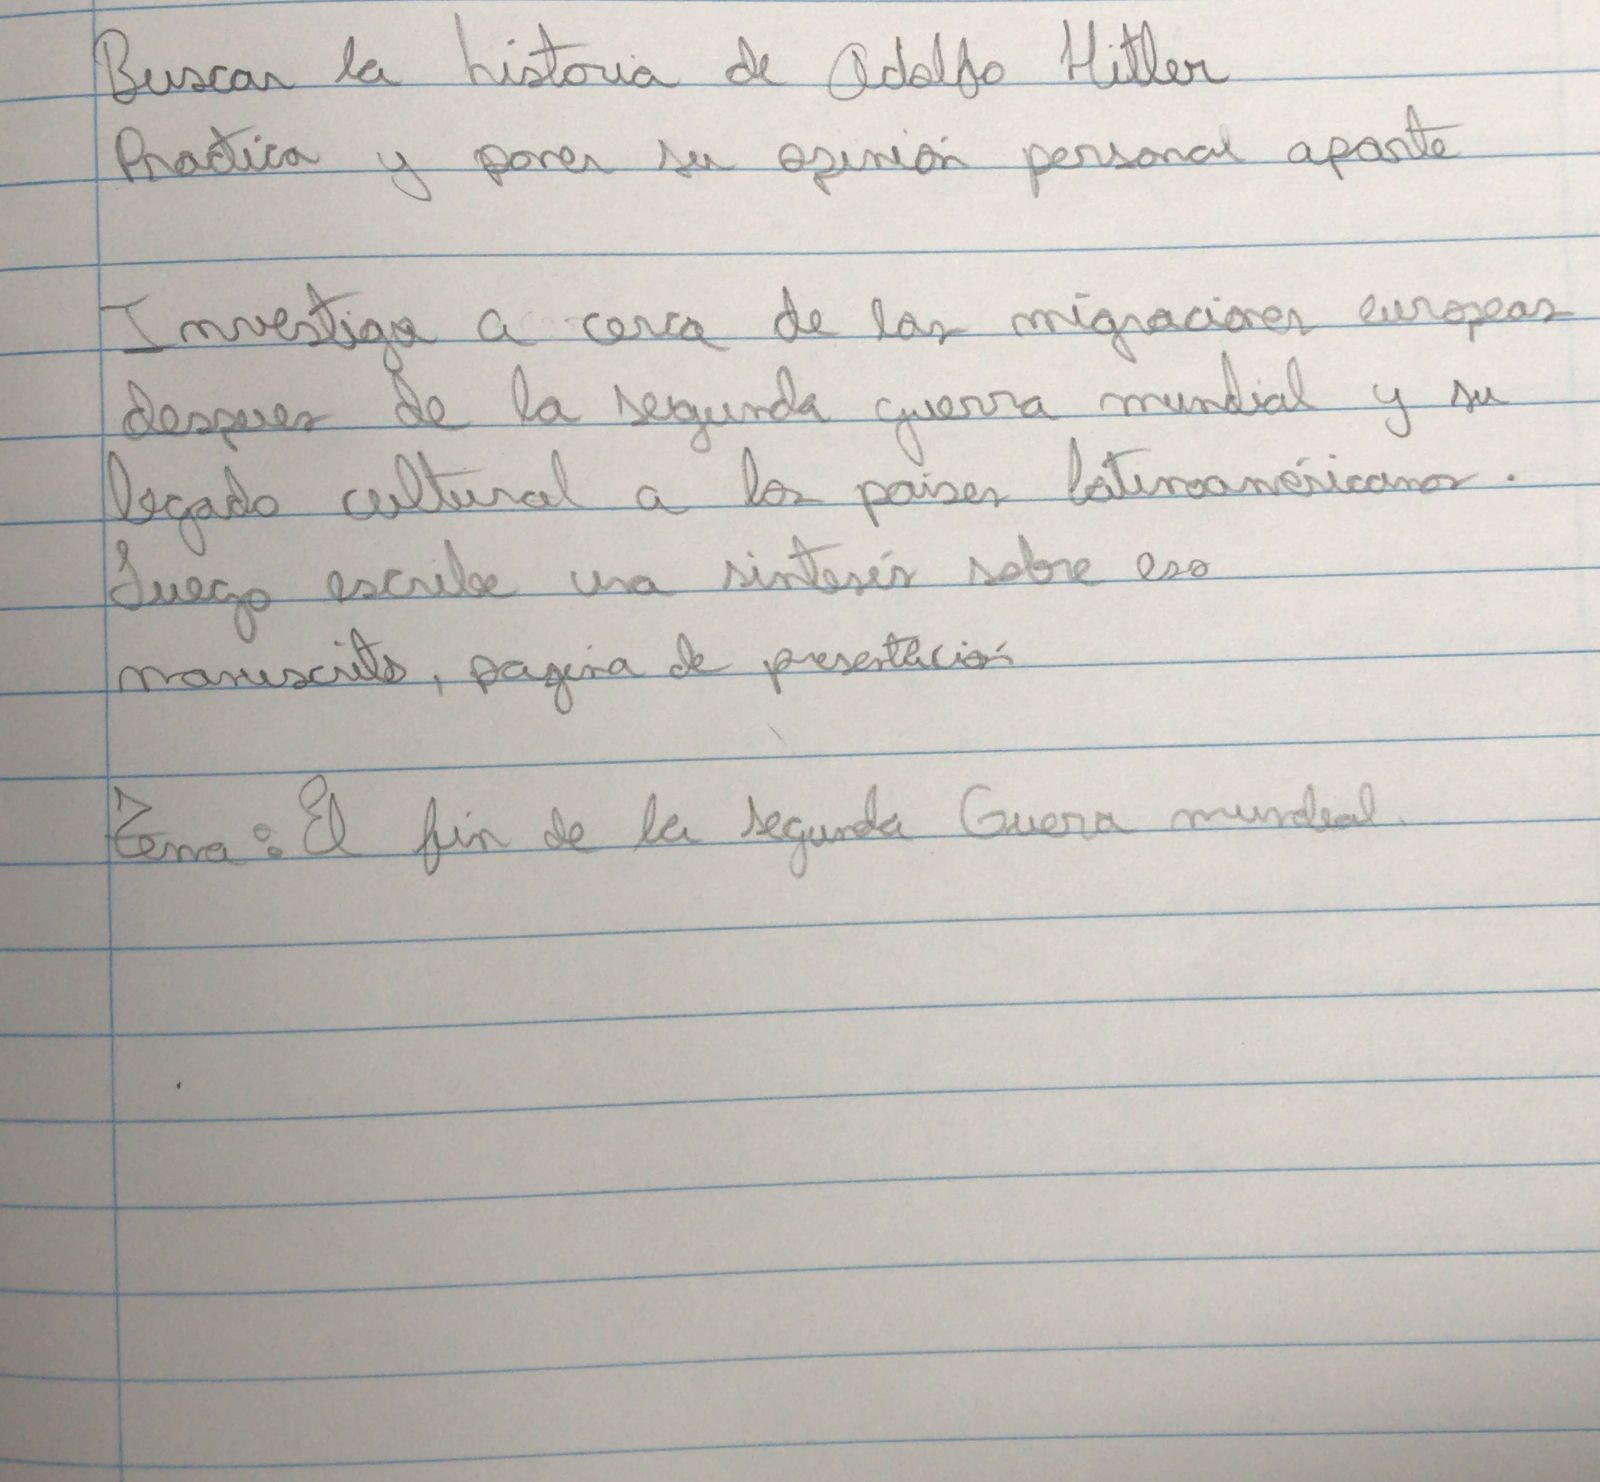 Buscar la historia de Adolfo Hitler
Practica y poner su opinión personal aparte
Investiga a cerca de las migraciones europeas
despues de la segunda guerra mundial y su
legado cultural a los paises latinoaméricanos.
Luego escribe una sintesis sobre eso
manuscrito, pagina de presentación
Tema: El fin de la segunda Guerra mundial.